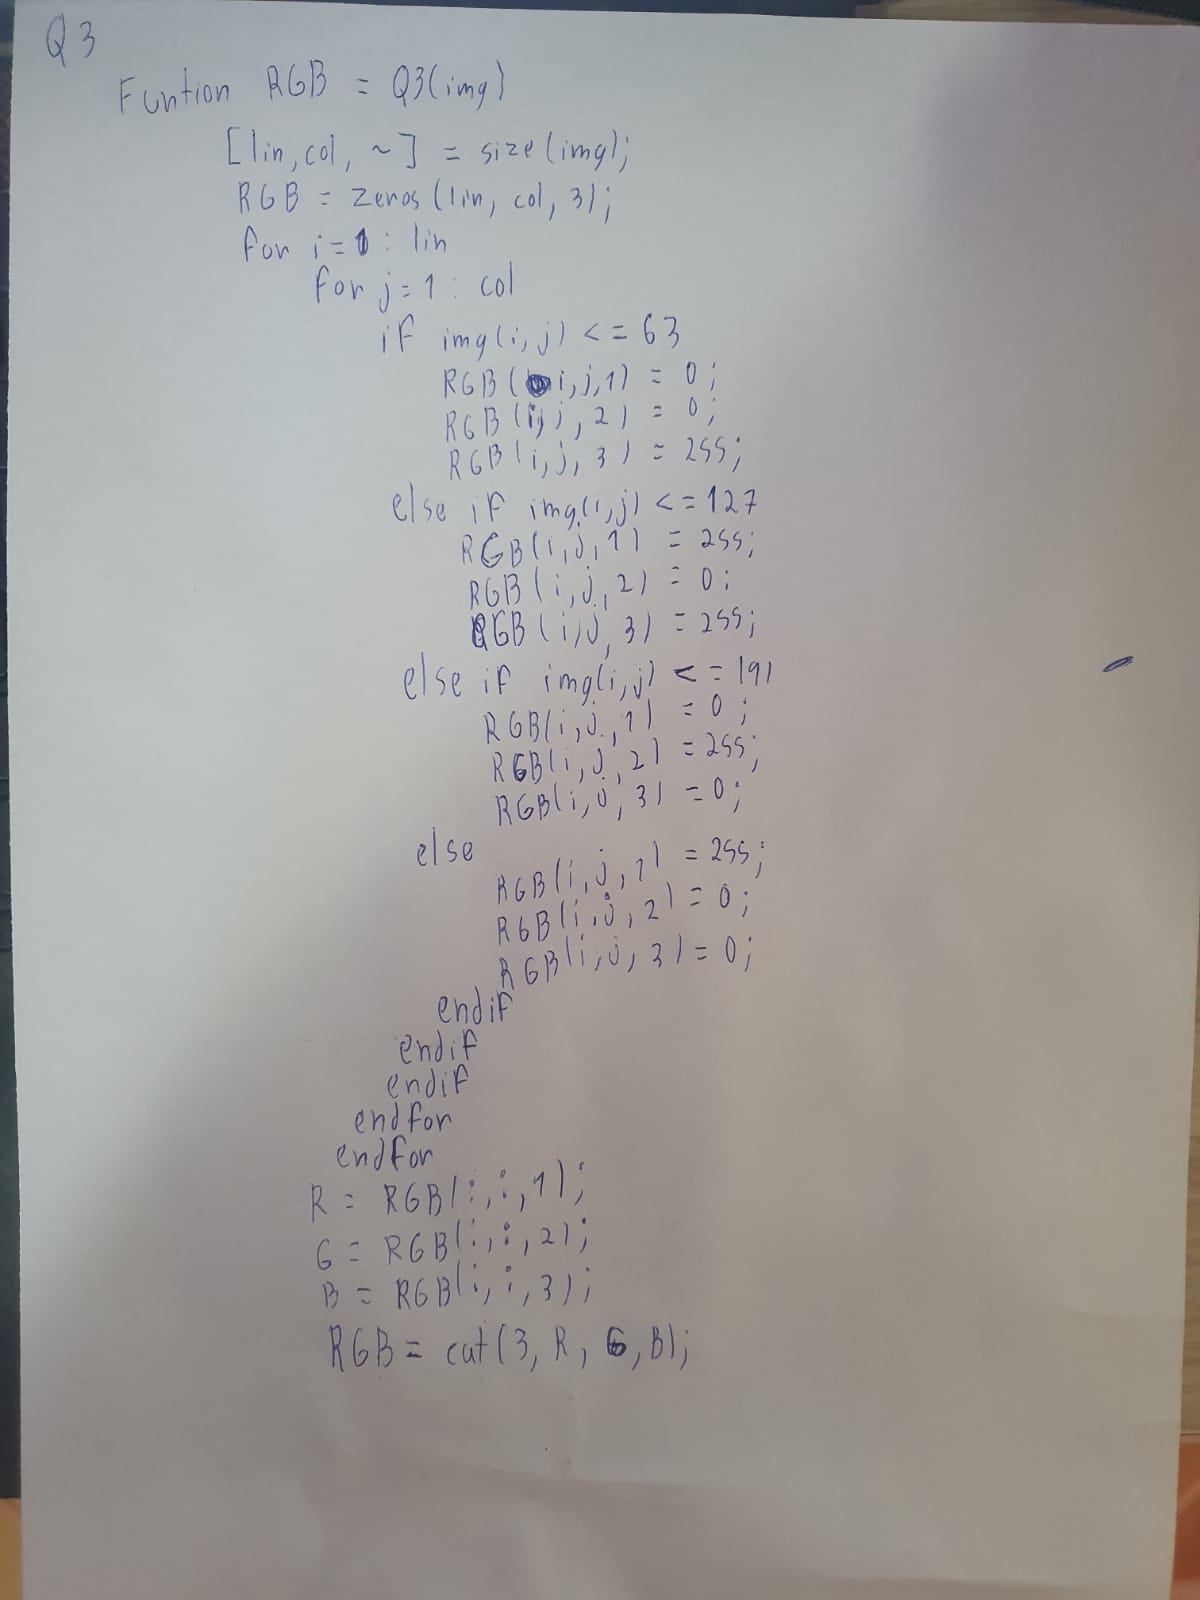 Q3
Funtion RGB = Q3(img)
[lin,col, ~] = size(img);
RGB = zeros(lin, col, 3);
for i=1: lin
for j=1: col
if img(i,j) <= 63
RGB(i,j,1) = 0;
RGB(i,j,2) = 0;
RGB(i,j,3) = 255;
else if img(i,j) <= 127
RGB(i,j,1) = 255;
RGB(i,j,2) = 0;
RGB(i,j,3) = 255;
else if img(i,j) <= 191
RGB(i,j,1) = 0;
RGB(i,j,2) = 255;
RGB(i,j,3) = 0;
else
RGB(i,j,1) = 255;
RGB(i,j,2) = 0;
RGB(i,j,3) = 0;
endif
endif
endif
endfor
endfor
R = RGB(:,:,1);
G = RGB(:,:,2);
B = RGB(:,:,3);
RGB = cat(3, R, G, B);